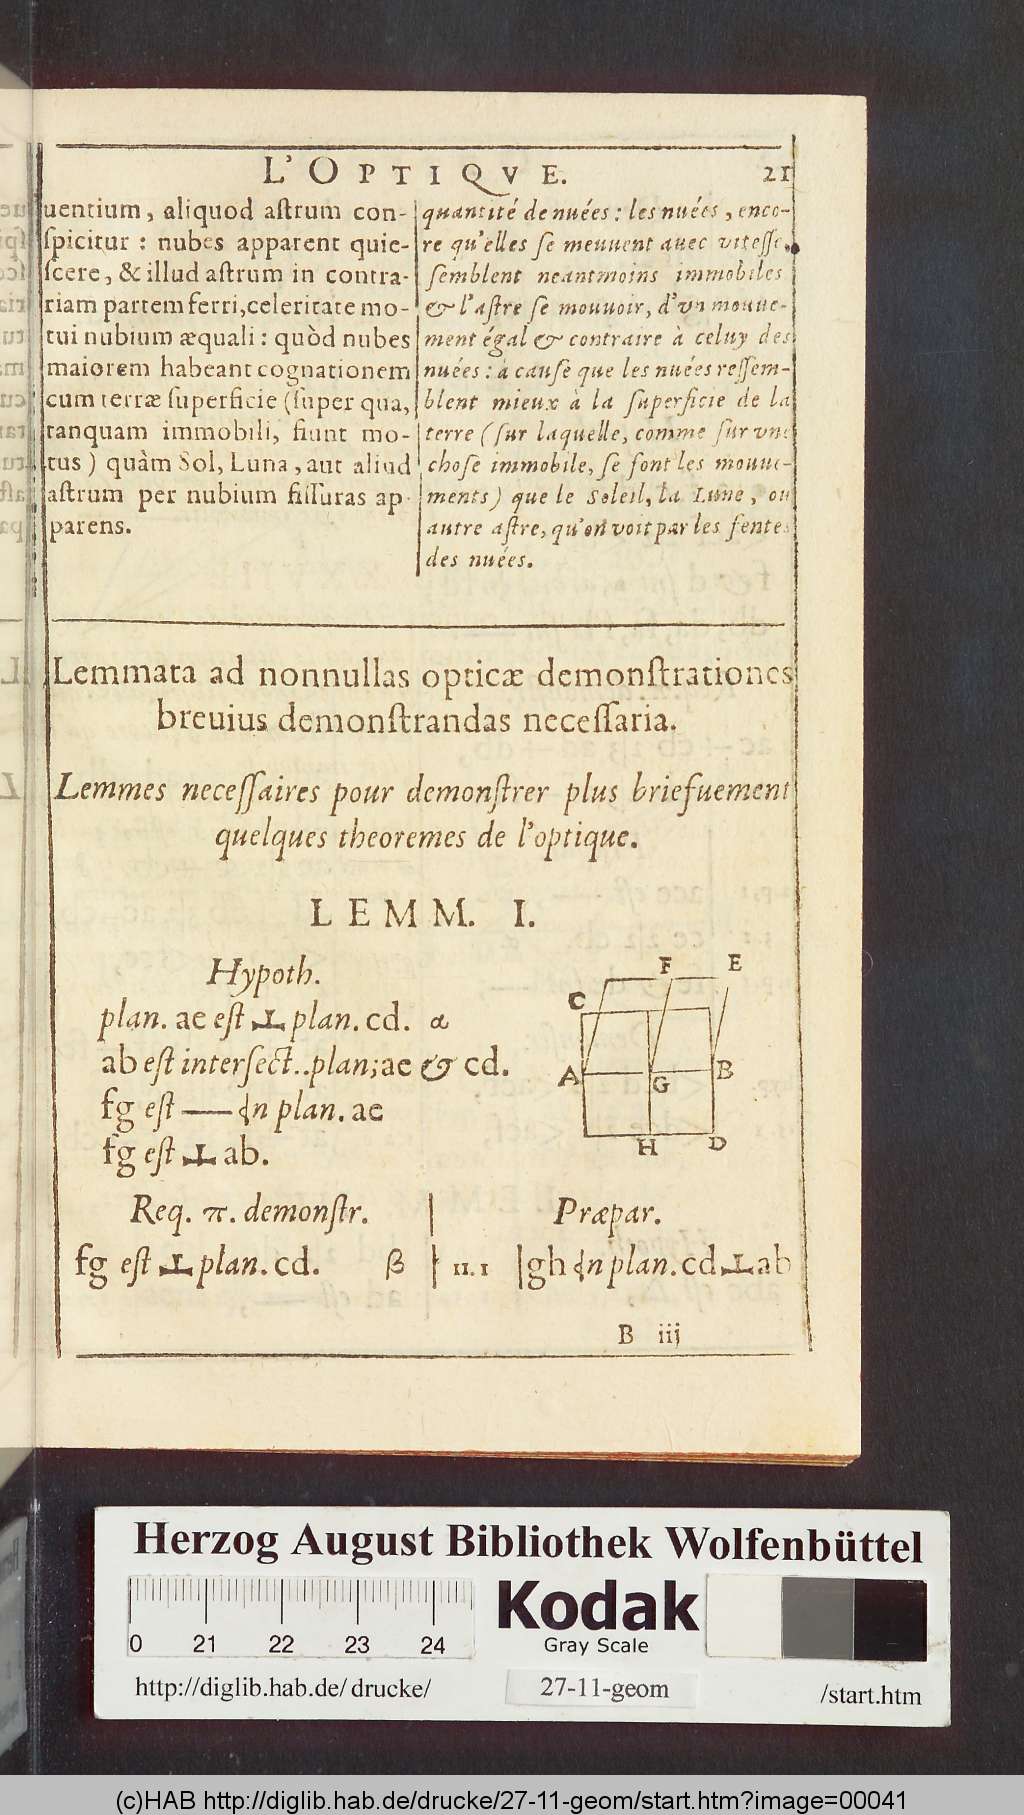 L'OPTIQVE. 21
uentium, aliquod aſtrum con-
ſpicitur : nubes apparent quie-
ſcere, & illud aſtrum in contra-
riam partem ferri, celeritate mo-
tui nubium æquali : quòd nubes
maiorem habeant cognationem
cum terræ ſuperficie (ſuper qua,
tanquam immobili, fiunt mo-
tus) quàm Sol, Luna, aut aliud
aſtrum per nubium fiſſuras ap-
parens.
quantité de nuées : les nuées, enco-
re qu'elles ſe meuuent auec viteſſe,
ſemblent neantmoins immobiles
& l'aſtre ſe mouuoir, d'vn mouue-
ment égal & contraire à celuy des
nuées : à cauſe que les nuées reſſem-
blent mieux à la ſuperficie de la
terre (ſur laquelle, comme ſur vne
choſe immobile, ſe font les mouue-
ments) que le Soleil, la Lune, ou
autre aſtre, qu'on voit par les fentes
des nuées.
Lemmata ad nonnullas opticæ demonſtrationes
breuius demonſtrandas neceſſaria.
Lemmes neceſſaires pour demonſtrer plus briefuement
quelques theoremes de l'optique.
LEMM. I.
Hypoth.
plan. ae eſt ⊥ plan. cd. α
ab eſt interſect..plan; ae & cd.
fg eſt — in plan. ae
fg eſt ⊥ ab.
F E
C
A G B
H D
Req. π. demonſtr.
fg eſt ⊥ plan. cd. β
Præpar.
11. 1 gh in plan. cd ⊥ ab
B iij
Herzog August Bibliothek Wolfenbüttel
0 21 22 23 24
Kodak
Gray Scale
http://diglib.hab.de/drucke/
27-11-geom
/start.htm
(c)HAB http://diglib.hab.de/drucke/27-11-geom/start.htm?image=00041